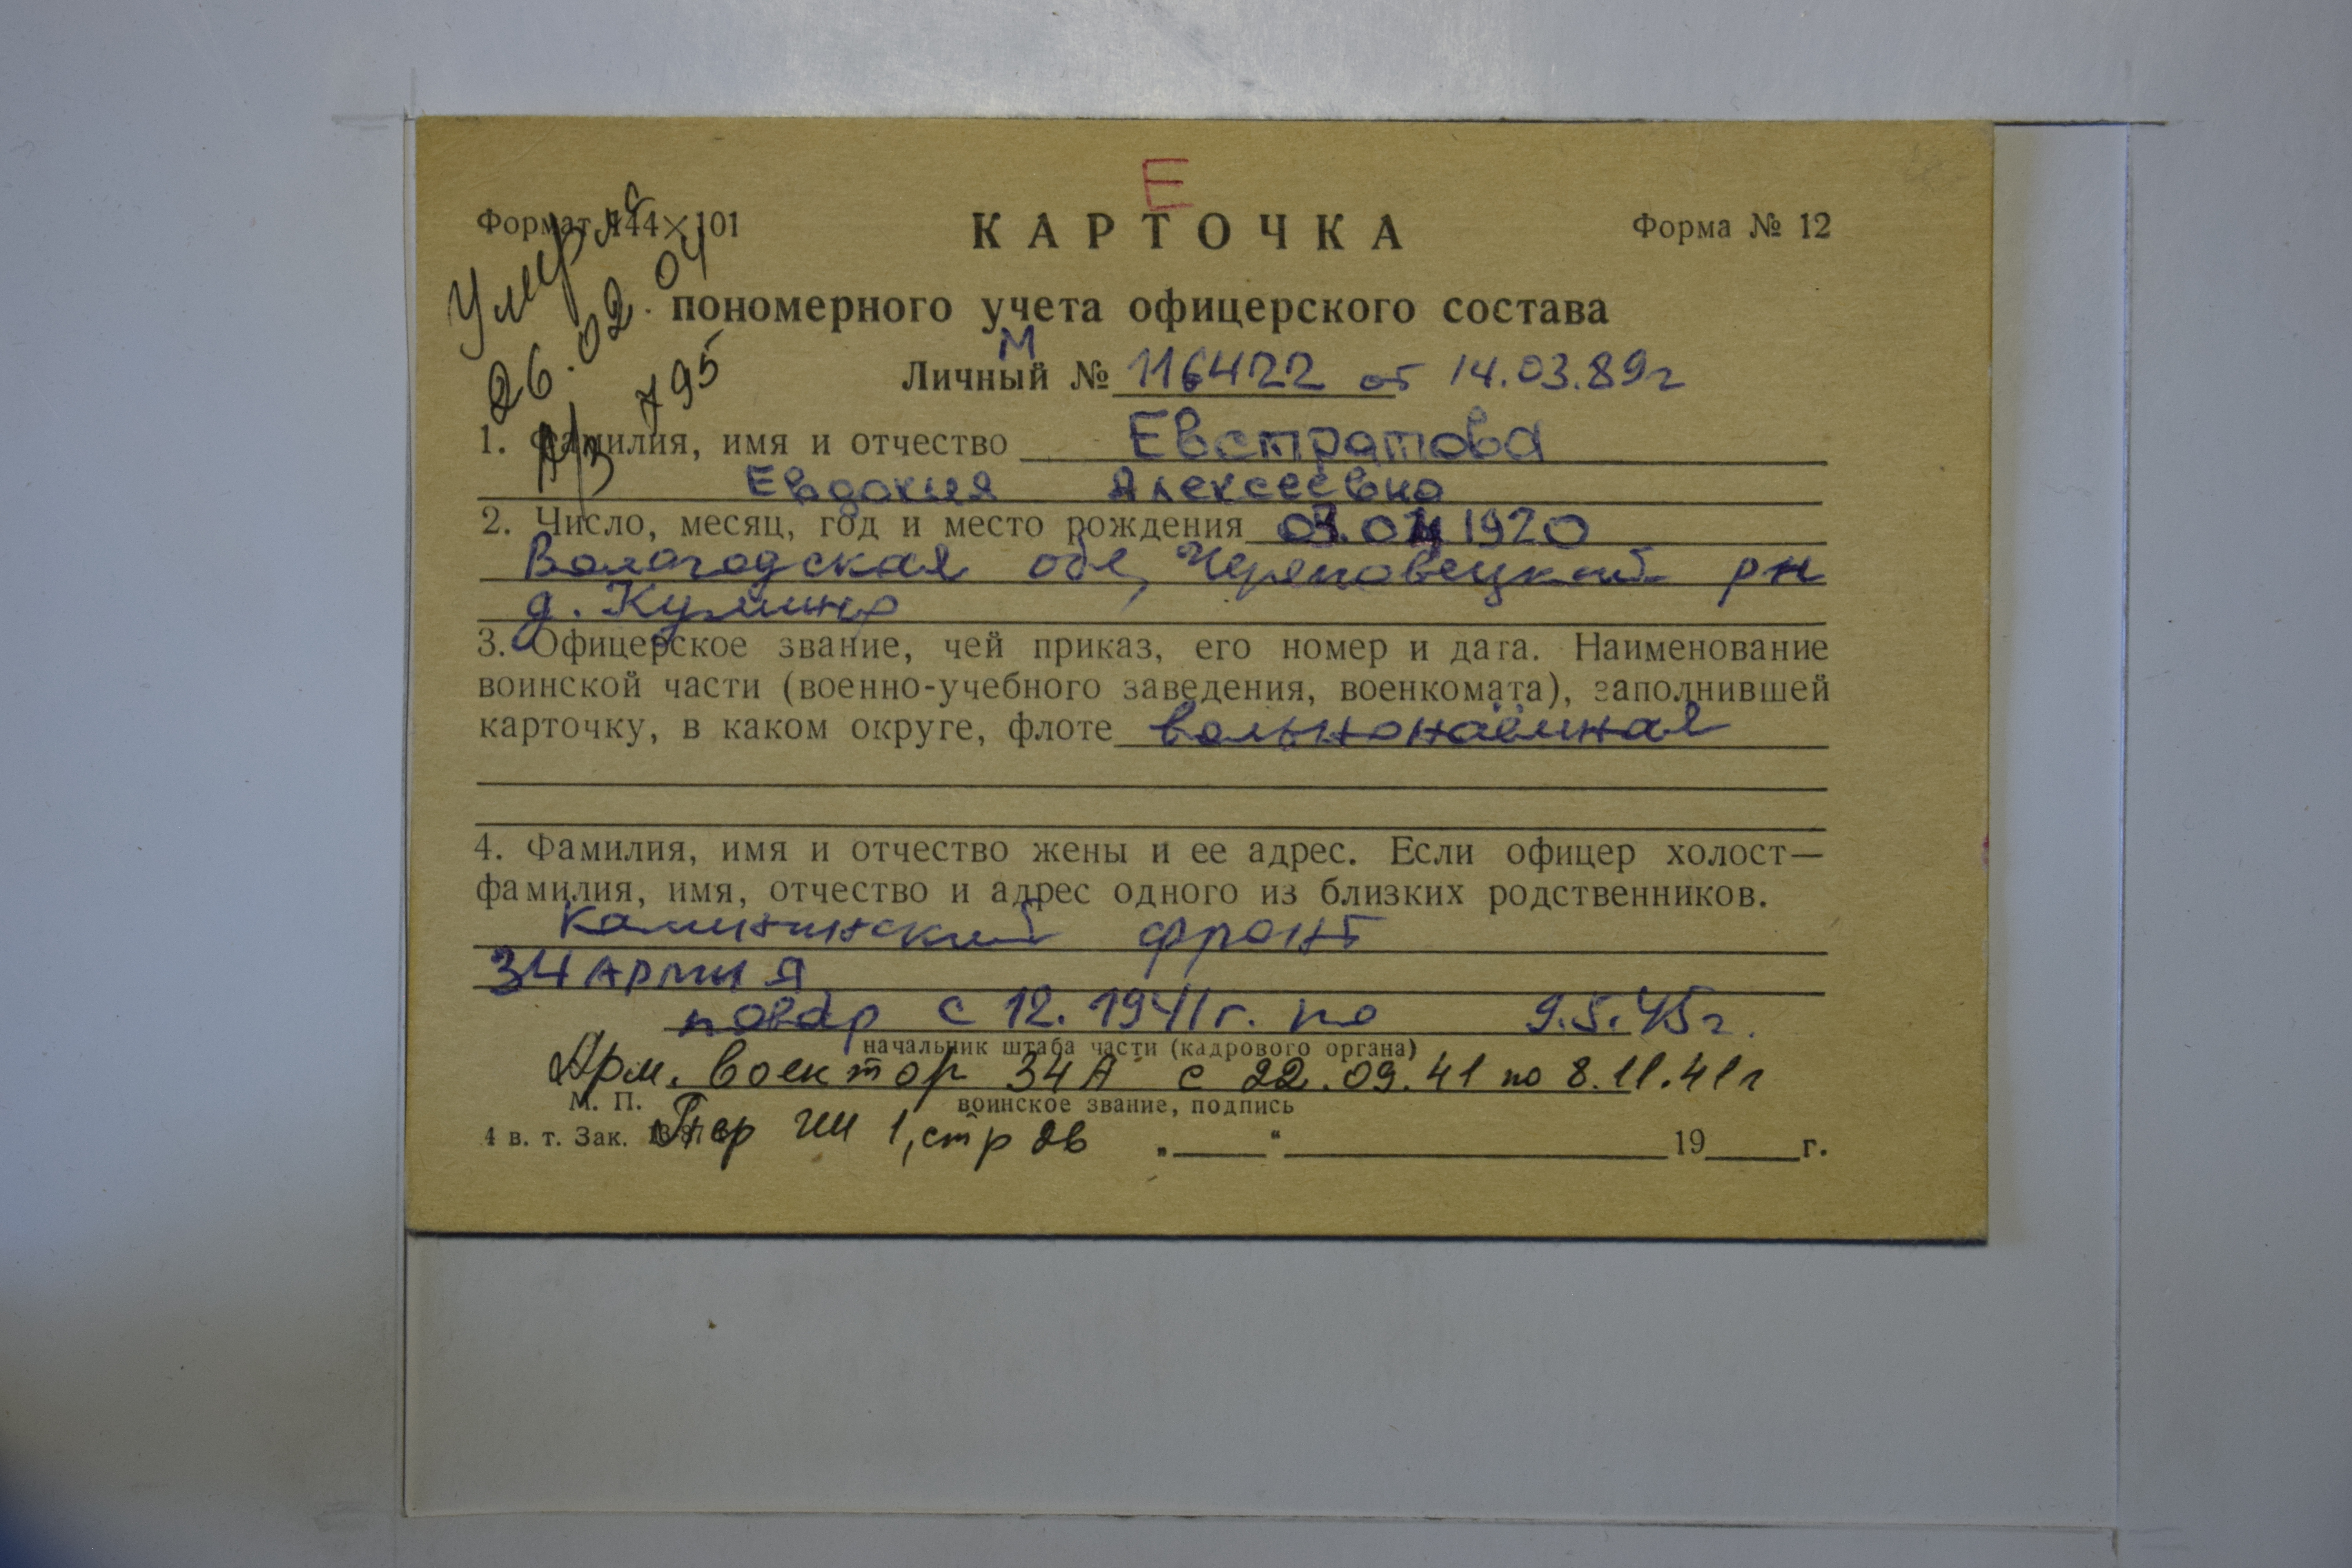 Е
Формат 144×101
КАРТОЧКА
Форма № 12
Умерла
26.02.04
пономерного учета офицерского состава
А/З 795
М
Личный № 116422 от 14.03.89г
1. Фамилия, имя и отчество Евстратова
Евдокия Алексеевна
2. Число, месяц, год и место рождения 1920
Вологодская обл, Череповецкий рн
д.
3. Офицерское звание, чей приказ, его номер и дата. Наименование
воинской части (военно-учебного заведения, военкомата), заполнившей
карточку, в каком округе, флоте вольнонаёмная
4. Фамилия, имя и отчество жены и ее адрес. Если офицер холост—
фамилия, имя, отчество и адрес одного из близких родственников.
Калининский фронт
34 АРМИЯ
повар с 12.1941г. по 9.5.45г.
начальник штаба части (кадрового органа)
Арм. военторг 34А с 22.09.41 по 8.11.41г
М. П.
воинское звание, подпись
4 в. т. Зак.
1, стр 26
„ “ 19 г.